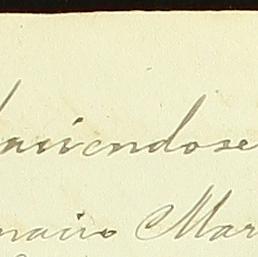 haciendose
nacio Mar